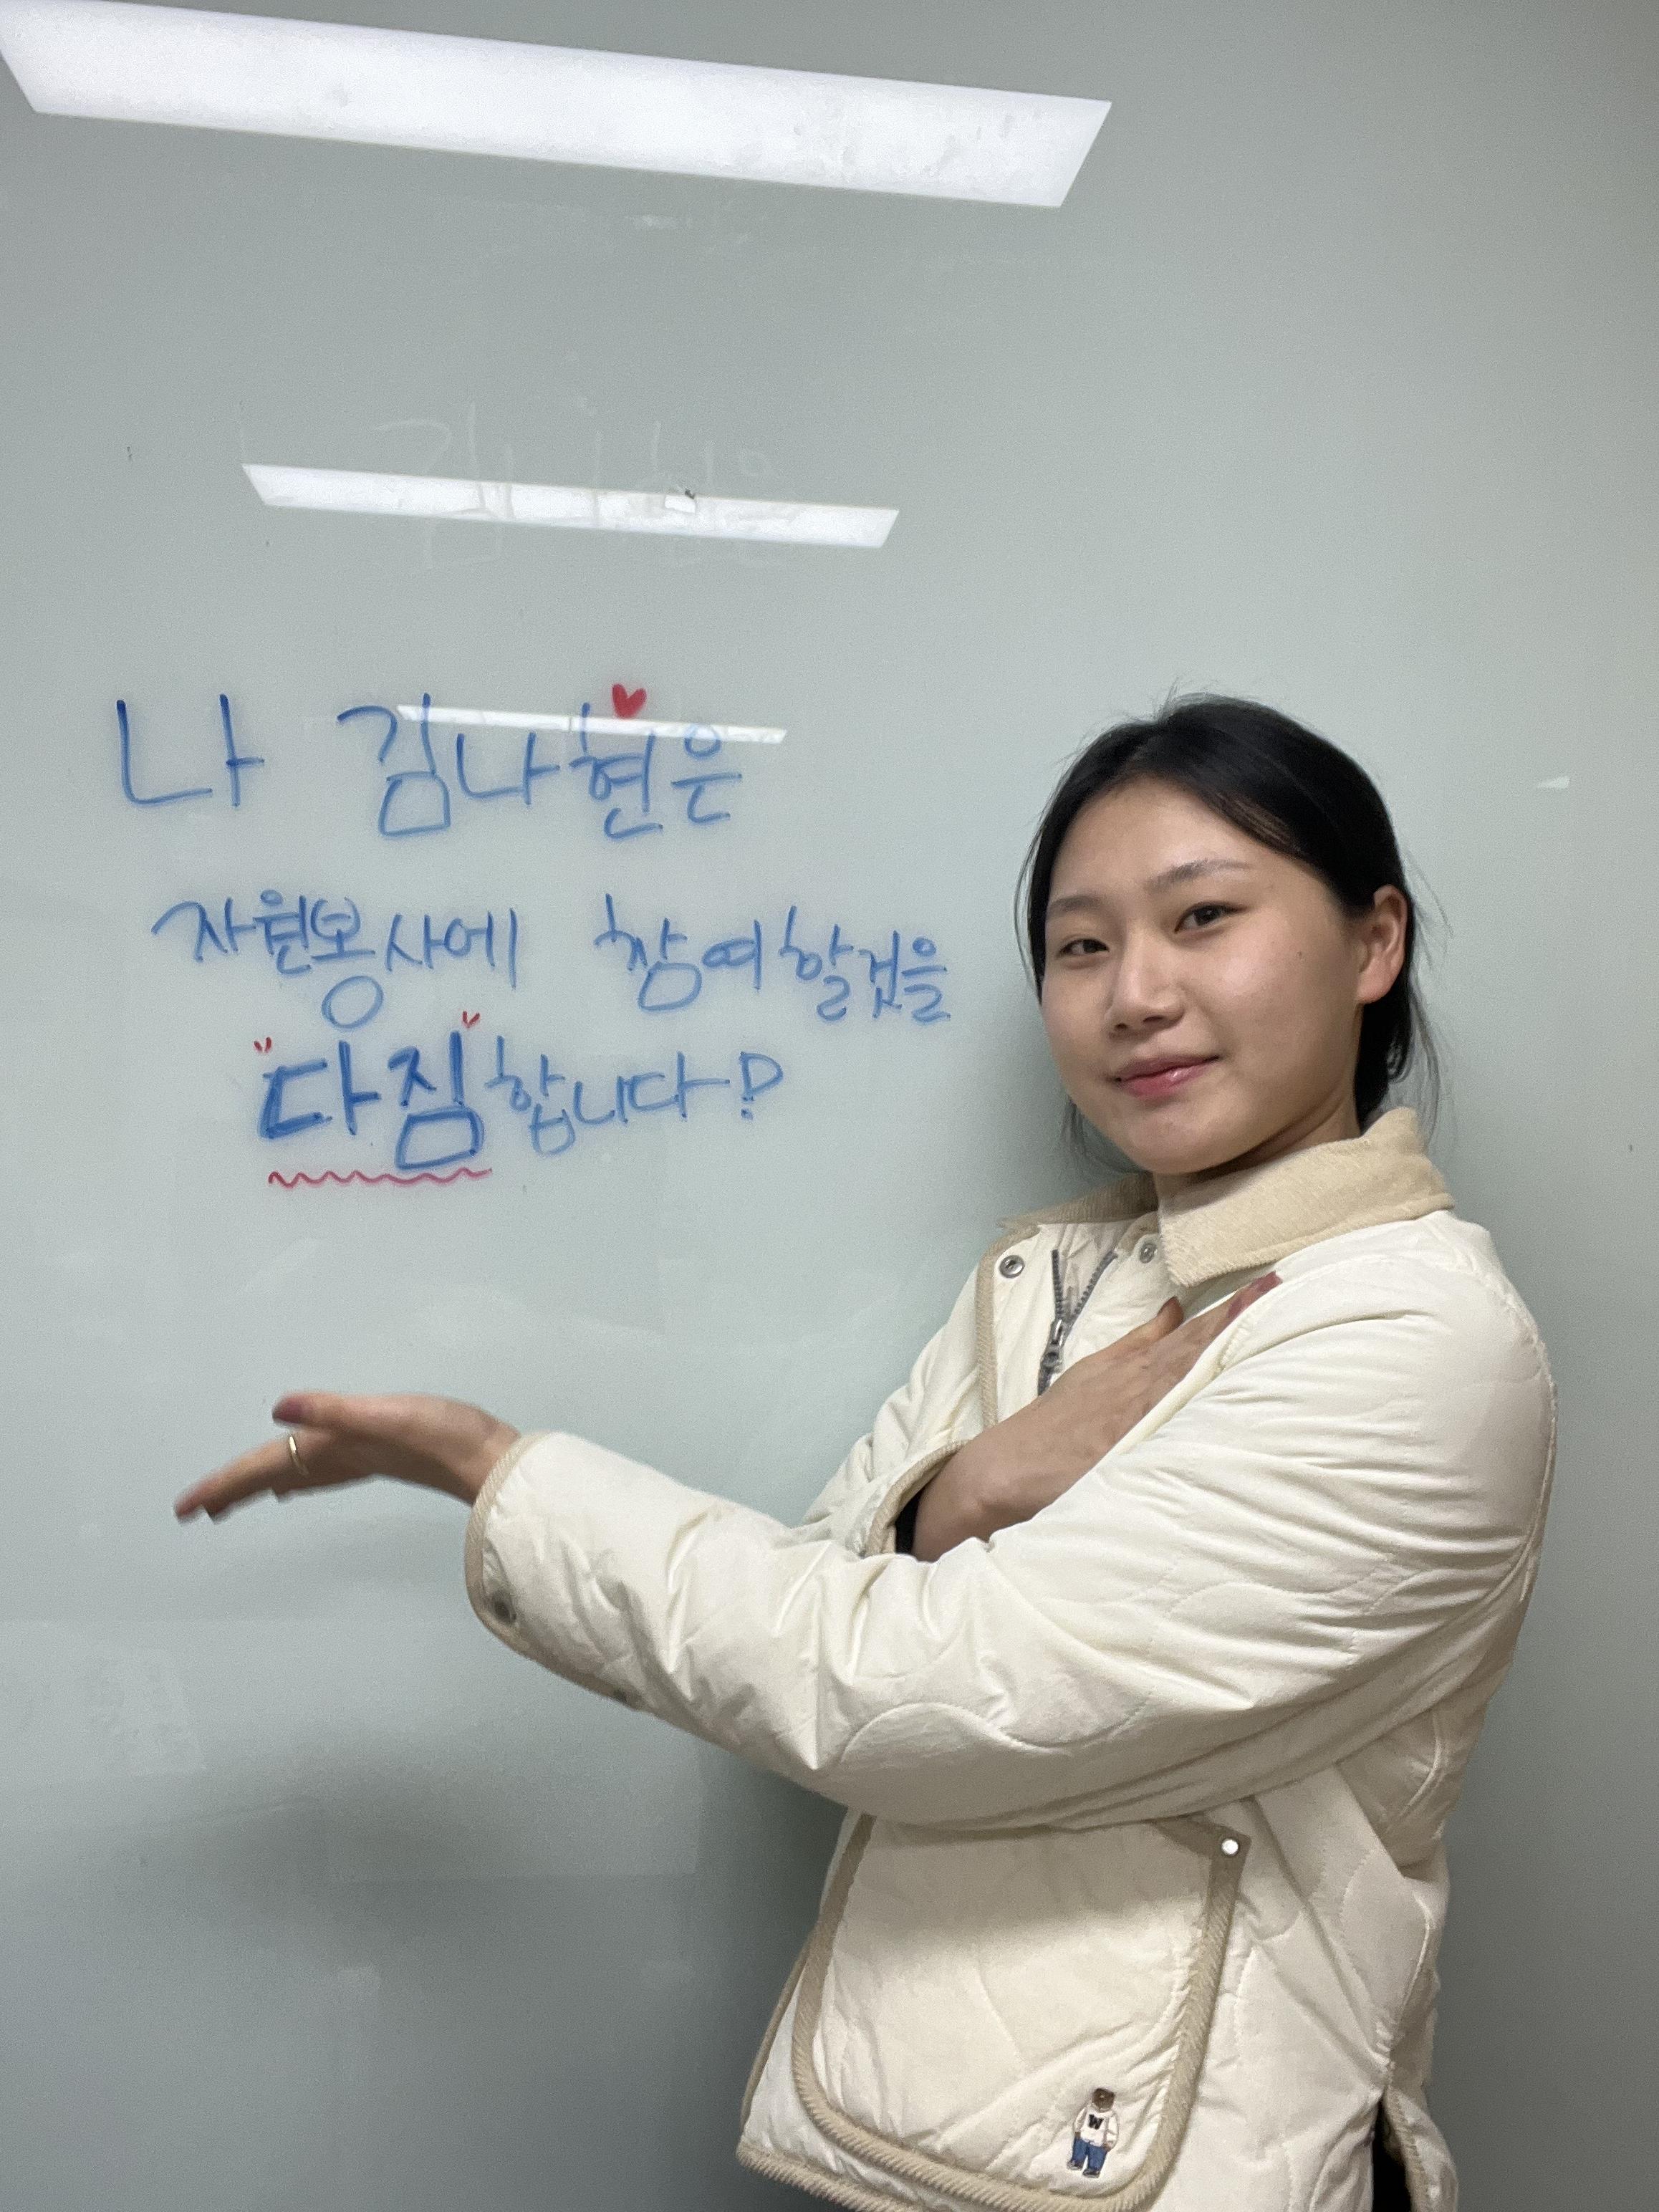 나 김나현은
자원봉사에 참여할것을
"다짐"합니다!
W